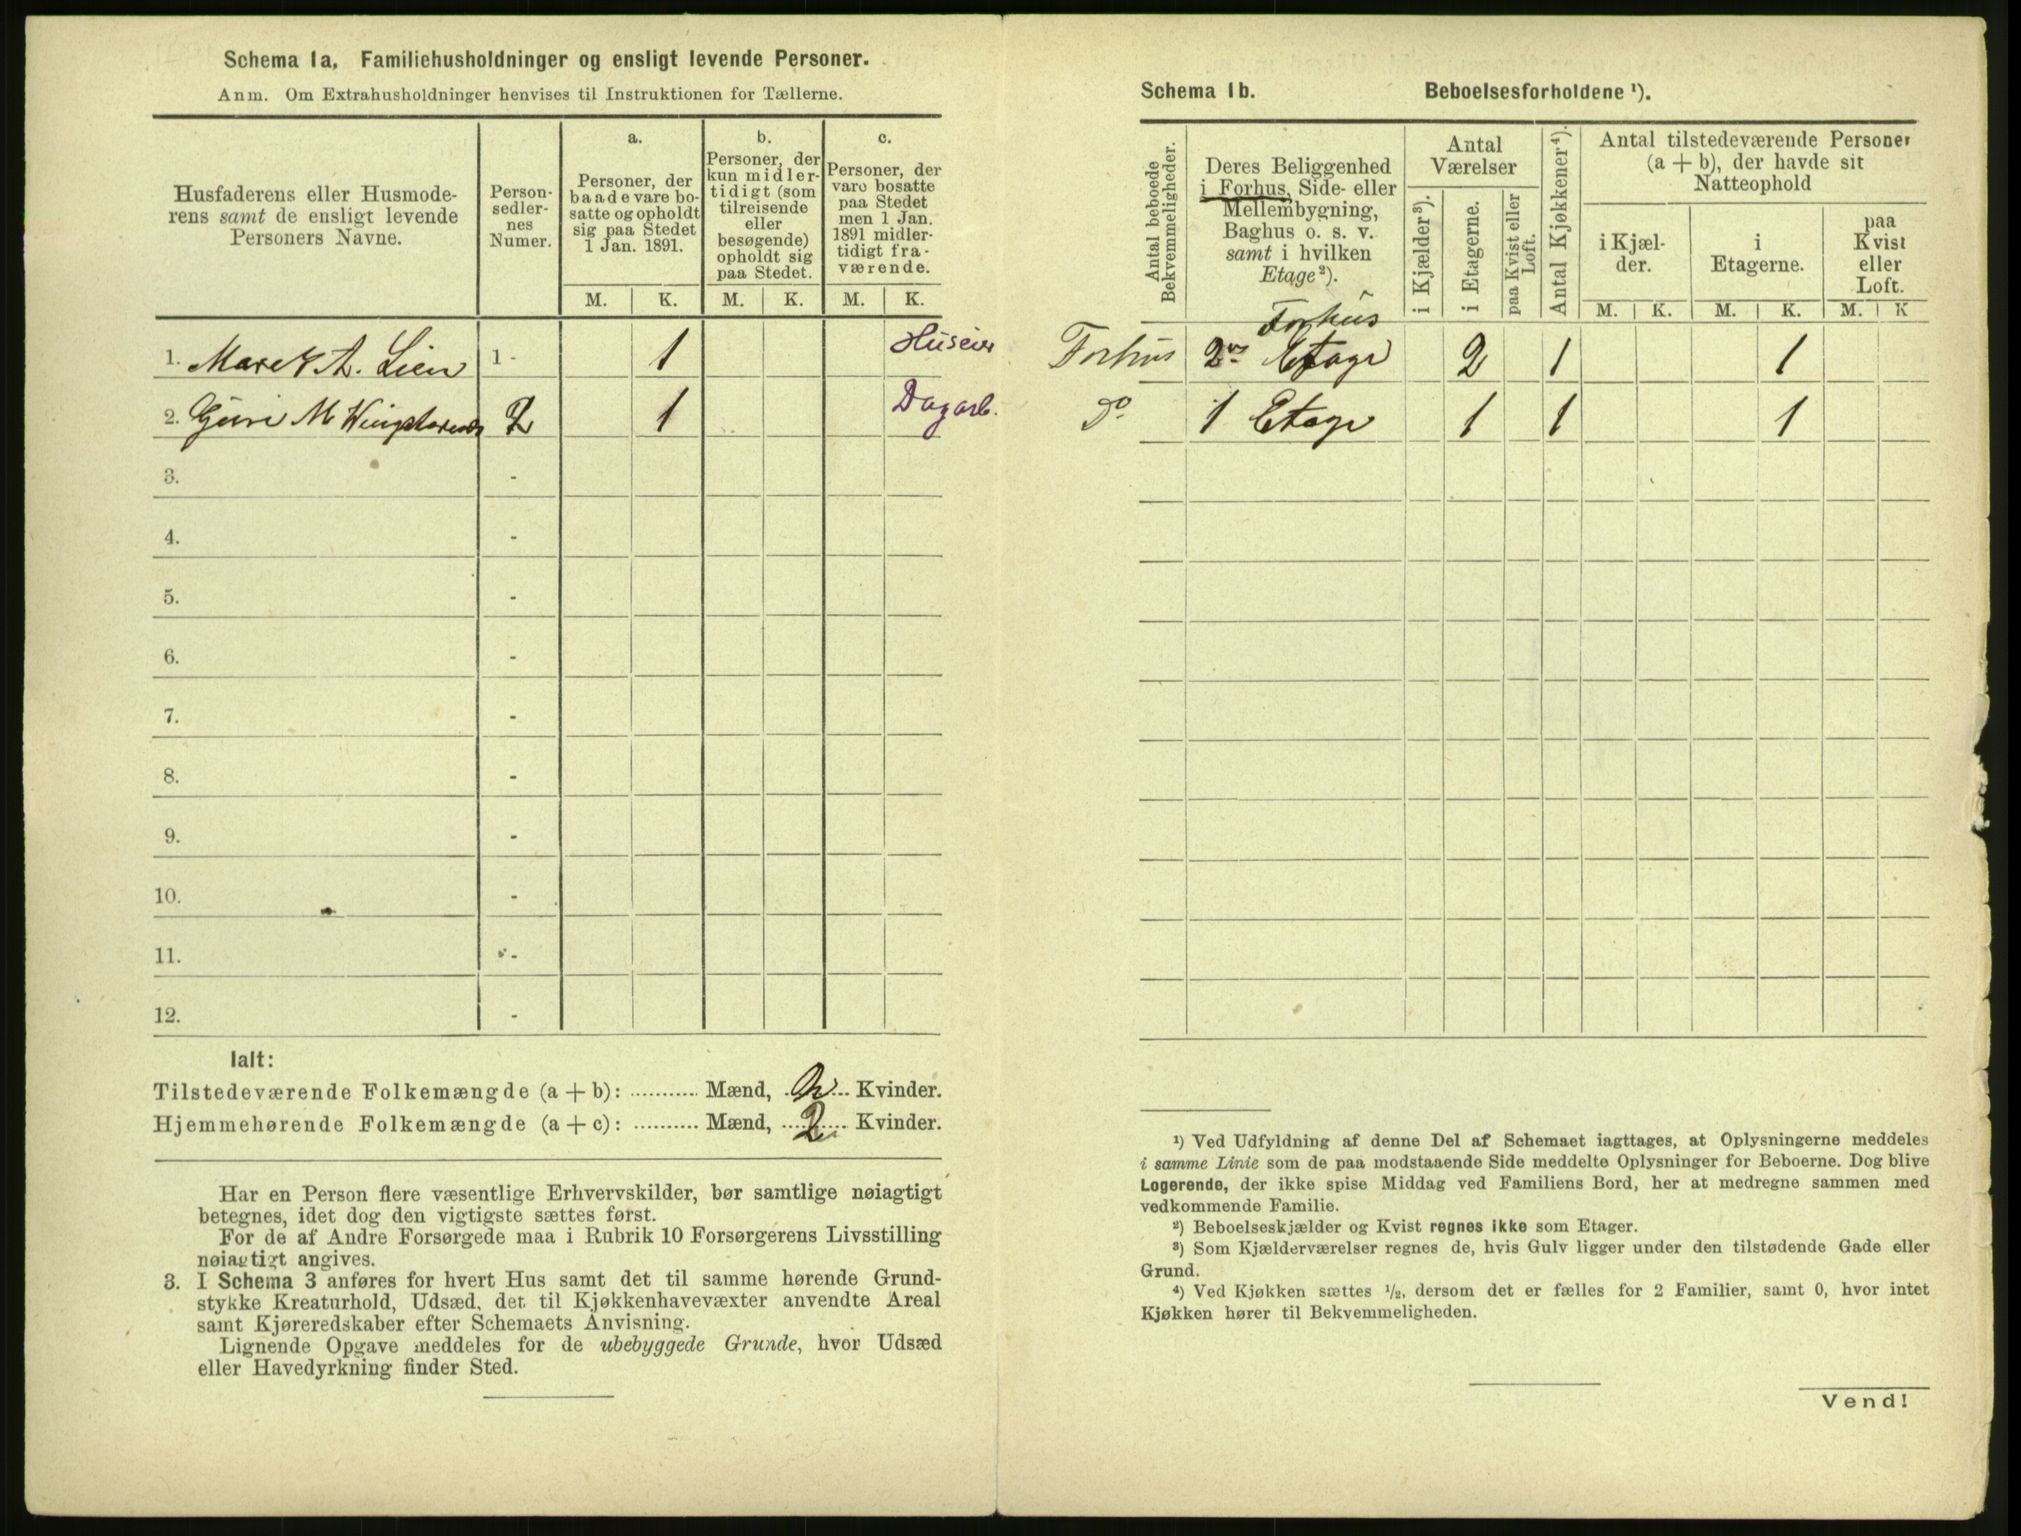 Schema 1a. Familiehusholdninger og ensligt levende Personer.
Anm. Om Extrahusholdninger henvises til Instruktionen for Tællerne.
Husfaderens eller Husmode-
rens samt de ensligt levende
Personers Navne.
Person-
sedler-
nes
Numer.
a.
Personer, der
baade vare bo-
satte og opholdt
sig paa Stedet
1 Jan. 1891.
b.
Personer, der
kun midler-
tidigt (som
tilreisende
eller
besøgende)
opholdt sig
paa Stedet.
c.
Personer, der
vare bosatte
paa Stedet
men 1 Jan.
1891 midler-
tidigt fra-
værende.
M. K. M. K. M. K.
1. Maret A. Lien 1 - 1 Huseier
2. Guri M 2 1 Dagarb.
3. -
4. -
5. -
6. -
7. -
8. -
9. -
10. -
11. -
12. -
Ialt:
Tilstedeværende Folkemængde (a + b): .......... Mænd, 2 Kvinder.
Hjemmehørende Folkemængde (a + c): .......... Mænd, 2 Kvinder.
Har en Person flere væsentlige Erhvervskilder, bør samtlige nøiagtigt
betegnes, idet dog den vigtigste sættes først.
For de af Andre Forsørgede maa i Rubrik 10 Forsørgerens Livsstilling
nøiagtigt angives.
3. I Schema 3 anføres for hvert Hus samt det til samme hørende Grund-
stykke Kreaturhold, Udsæd, det til Kjøkkenhavevæxter anvendte Areal
samt Kjøreredskaber efter Schemaets Anvisning.
Lignende Opgave meddeles for de ubebyggede Grunde, hvor Udsæd
eller Havedyrkning finder Sted.
Schema 1b. Beboelsesforholdene ¹).
Antal beboede
Bekvemmeligheder.
Deres Beliggenhed
i Forhus, Side- eller
Mellembygning,
Baghus o. s. v.
samt i hvilken
Etage²).
Antal
Værelser
i Kjælder³).
i Etagerne.
paa Kvist eller
Loft.
Antal Kjøkkener⁴).
Antal tilstedeværende Personer
(a + b), der havde sit
Natteophold
i Kjæl-
der.
i
Etagerne.
paa
Kvist
eller
Loft.
M. K. M. K. M. K
Forhus
Forhus 2 Etage 2 1 1
Do 1 Etage 1 1 1
¹) Ved Udfyldning af denne Del af Schemaet iagttages, at Oplysningerne meddeles
i samme Linie som de paa modstaaende Side meddelte Oplysninger for Beboerne. Dog blive
Logerende, der ikke spise Middag ved Familiens Bord, her at medregne sammen med
vedkommende Familie.
²) Beboelseskjælder og Kvist regnes ikke som Etager.
³) Som Kjælderværelser regnes de, hvis Gulv ligger under den tilstødende Gade eller
Grund.
⁴) Ved Kjøkken sættes ½, dersom det er fælles for 2 Familier, samt 0, hvor intet
Kjøkken hører til Bekvemmeligheden.
Vend!